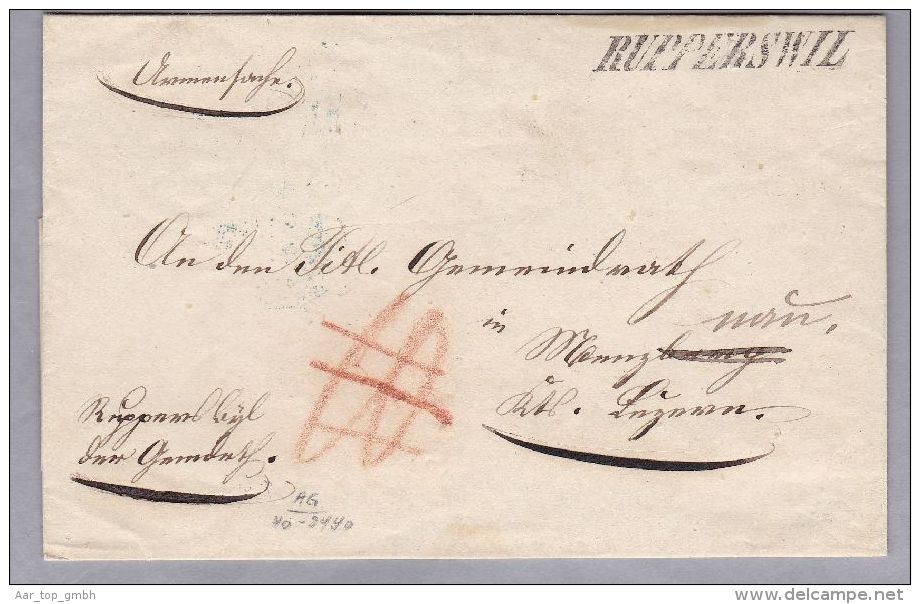 RUPPERSWIL
Armensache.
An den Titl. Gemeindrath
in nau.
Menzberg
Kts. Luzern.
Rupperswyl
der Gemdrth.
AG
Aar_top_gmbh
www.delcampe.net